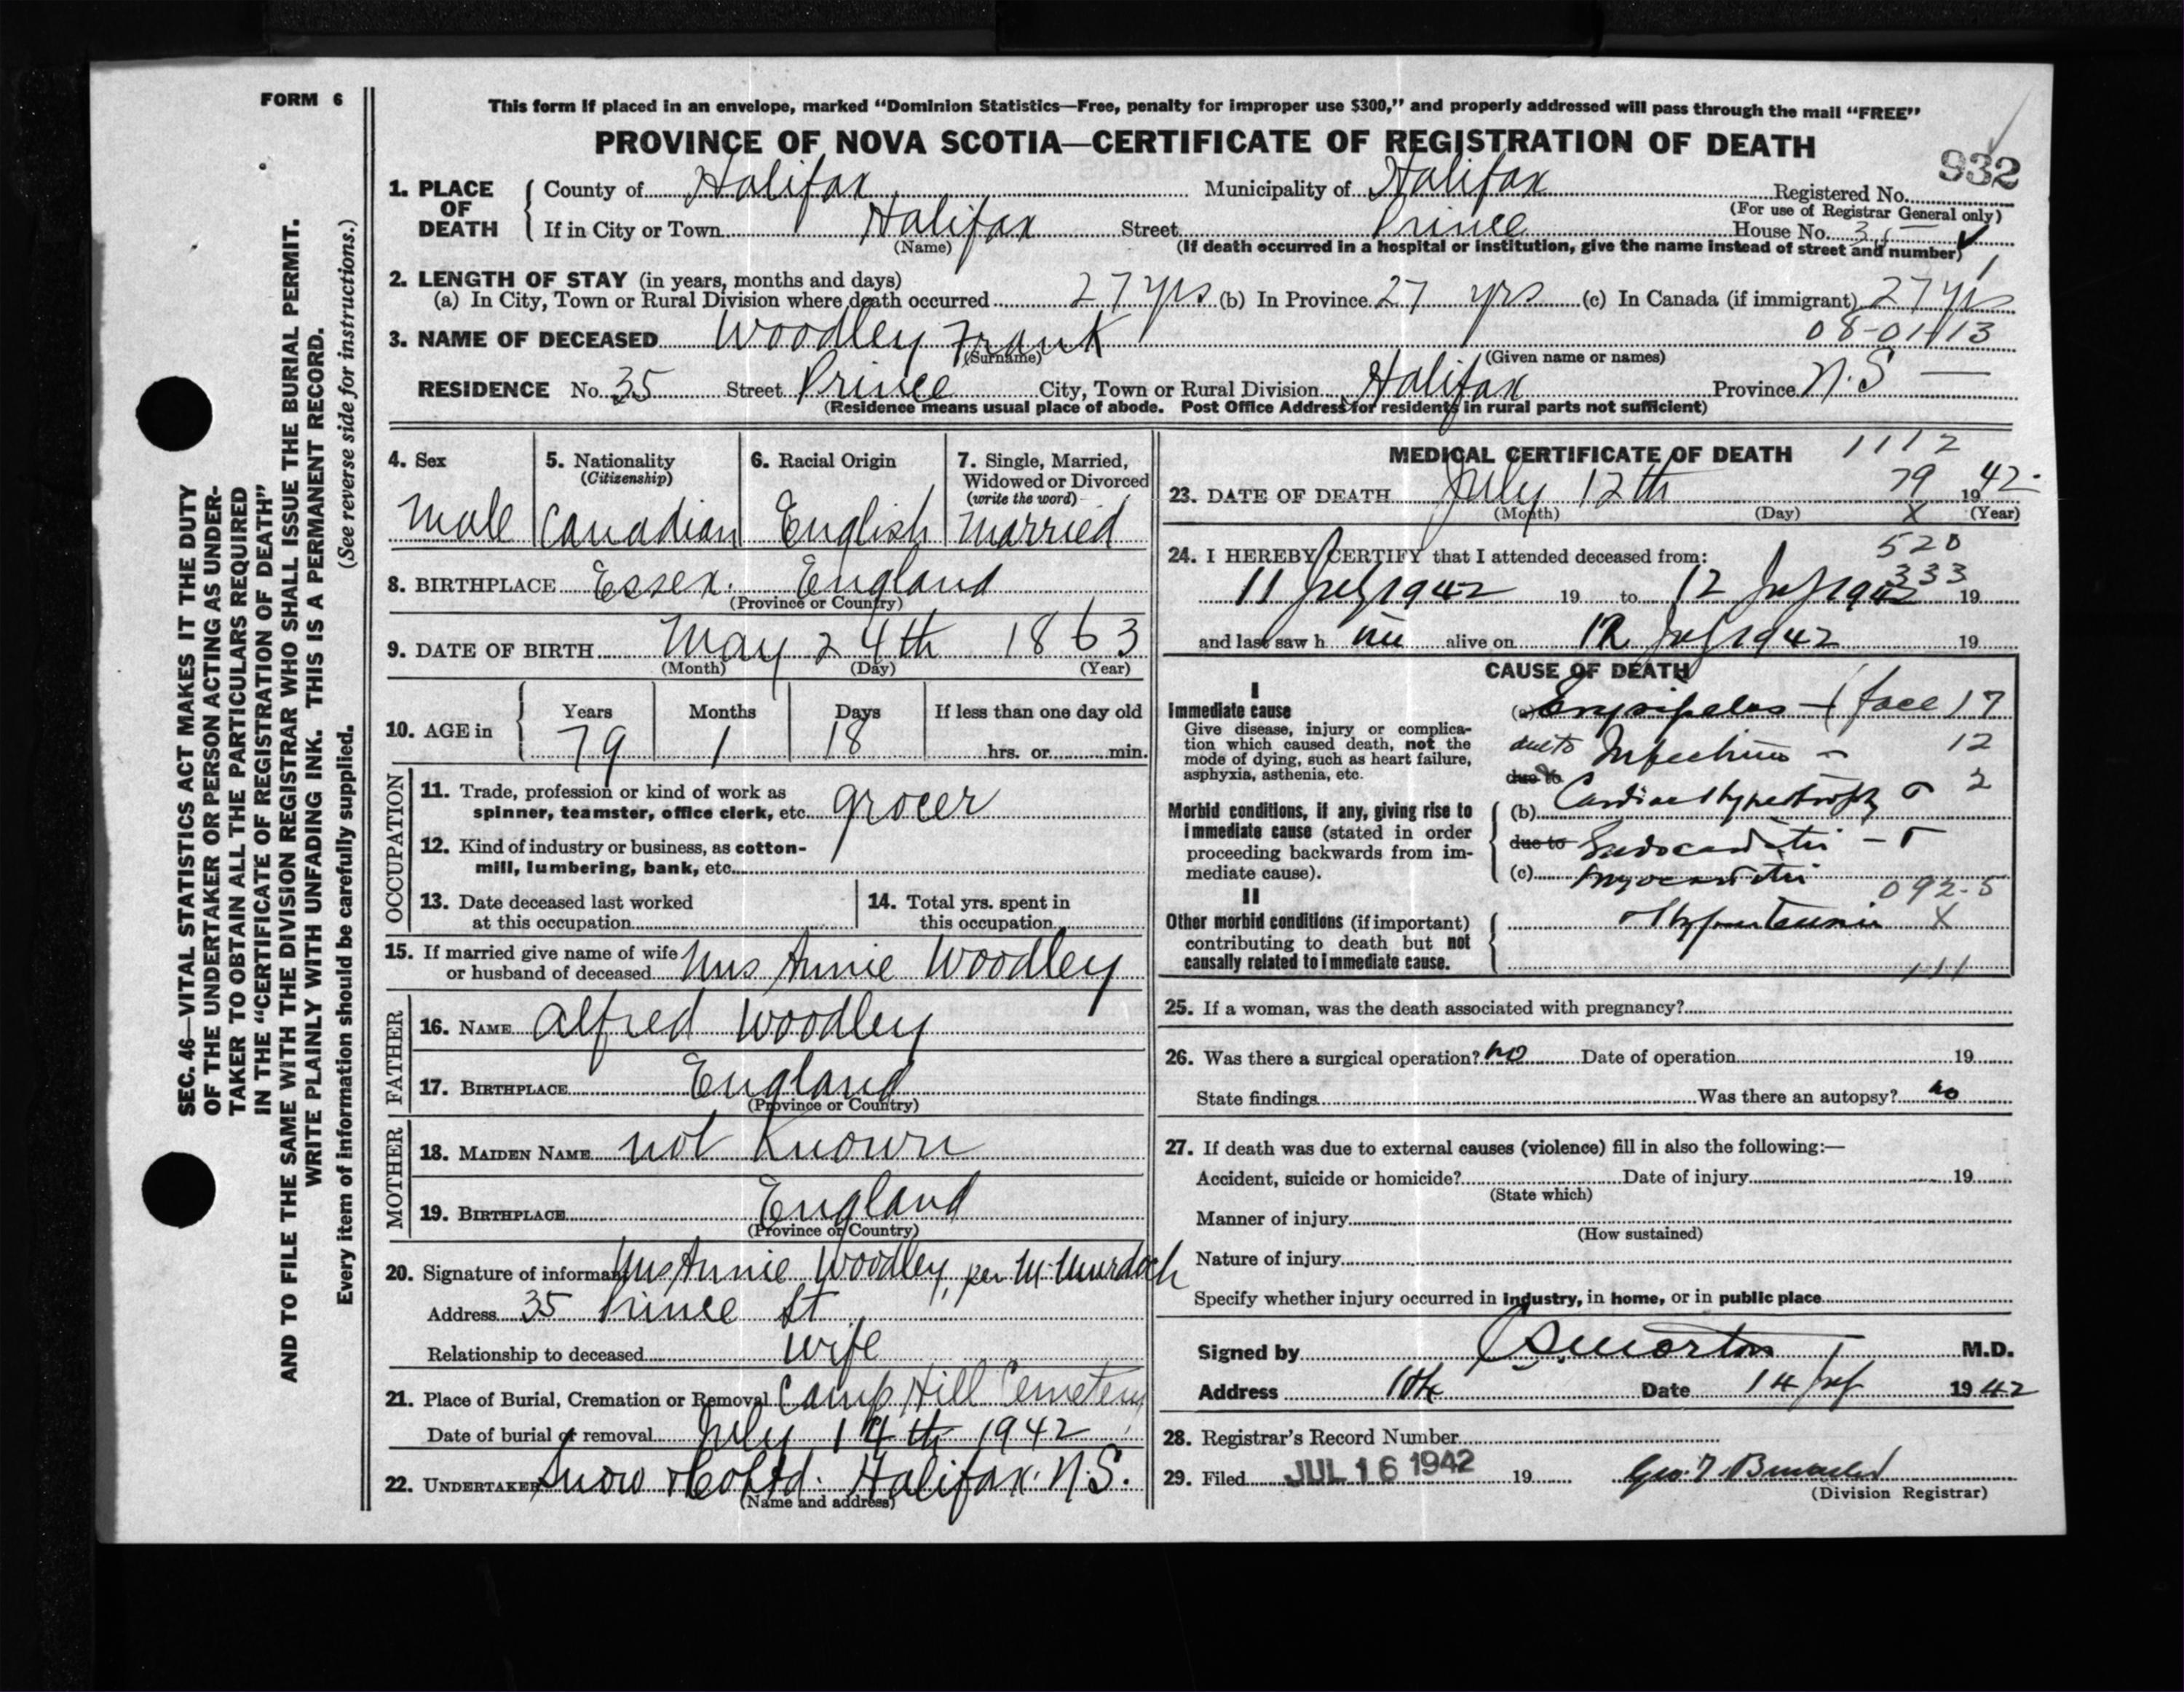 FORM 6
SEC. 46—VITAL STATISTICS ACT MAKES IT THE DUTY
OF THE UNDERTAKER OR PERSON ACTING AS UNDER-
TAKER TO OBTAIN ALL THE PARTICULARS REQUIRED
IN THE "CERTIFICATE OF REGISTRATION OF DEATH"
AND TO FILE THE SAME WITH THE DIVISION REGISTRAR WHO SHALL ISSUE THE BURIAL PERMIT.
WRITE PLAINLY WITH UNFADING INK. THIS IS A PERMANENT RECORD.
Every item of information should be carefully supplied. (See reverse side for instructions.)
This form if placed in an envelope, marked "Dominion Statistics—Free, penalty for improper use $300," and properly addressed will pass through the mail "FREE"
PROVINCE OF NOVA SCOTIA—CERTIFICATE OF REGISTRATION OF DEATH
932
1. PLACE OF DEATH County of Halifax Municipality of Halifax Registered No.
(For use of Registrar General only)
If in City or Town Halifax Street Prince House No. 35
(Name) (If death occurred in a hospital or institution, give the name instead of street and number)
2. LENGTH OF STAY (in years, months and days)
(a) In City, Town or Rural Division where death occurred 27 yrs (b) In Province 27 yrs (c) In Canada (if immigrant) 27 yrs
08-01-13
3. NAME OF DECEASED Woodley Frank
(Surname) (Given name or names)
RESIDENCE No. 35 Street Prince City, Town or Rural Division Halifax Province N.S —
(Residence means usual place of abode. Post Office Address for residents in rural parts not sufficient)
4. Sex 5. Nationality 6. Racial Origin 7. Single, Married,
(Citizenship) Widowed or Divorced
(write the word)
Male Canadian English Married
8. BIRTHPLACE Essex. England
(Province or Country)
9. DATE OF BIRTH May 24th 1863
(Month) (Day) (Year)
10. AGE in Years Months Days If less than one day old
79 1 18 hrs. or min.
OCCUPATION
11. Trade, profession or kind of work as
spinner, teamster, office clerk, etc. grocer
12. Kind of industry or business, as cotton-
mill, lumbering, bank, etc.
13. Date deceased last worked
at this occupation
14. Total yrs. spent in
this occupation
15. If married give name of wife
or husband of deceased Mrs Annie Woodley
FATHER
16. NAME Alfred Woodley
17. BIRTHPLACE England
(Province or Country)
MOTHER
18. MAIDEN NAME not Known
19. BIRTHPLACE England
(Province or Country)
20. Signature of informant Mrs Annie Woodley, per M Murdoch
Address 35 Prince St
Relationship to deceased wife
21. Place of Burial, Cremation or Removal Camp Hill Cemetery
Date of burial or removal July 14th 1942
22. UNDERTAKER Snow & Co Ltd. Halifax. N.S.
(Name and address)
MEDICAL CERTIFICATE OF DEATH 1112
79
23. DATE OF DEATH July 12th 1942.
(Month) (Day) X (Year)
520
24. I HEREBY CERTIFY that I attended deceased from:
333
11 July 1942 19 to 12 July 1942 19
and last saw h im alive on 12 July 1942 19
CAUSE OF DEATH
I
Immediate cause
Give disease, injury or complica-
tion which caused death, not the
mode of dying, such as heart failure,
asphyxia, asthenia, etc.
(a) Erysipelas face 17
due to Infection 12
due to
Morbid conditions, if any, giving rise to
immediate cause (stated in order
proceeding backwards from im-
mediate cause).
(b) Cardiac Hypertrophy 2
due to Endocarditis
(c) Myocarditis
092-5
II
Other morbid conditions (if important)
contributing to death but not
causally related to immediate cause.
Hypertension X
111
25. If a woman, was the death associated with pregnancy?
26. Was there a surgical operation? no Date of operation 19
State findings Was there an autopsy? no
27. If death was due to external causes (violence) fill in also the following:—
Accident, suicide or homicide? Date of injury 19
(State which)
Manner of injury
(How sustained)
Nature of injury
Specify whether injury occurred in industry, in home, or in public place
Signed by Morton M.D.
Address Date 14 July 1942
28. Registrar's Record Number
29. Filed JUL 16 1942 19
(Division Registrar)